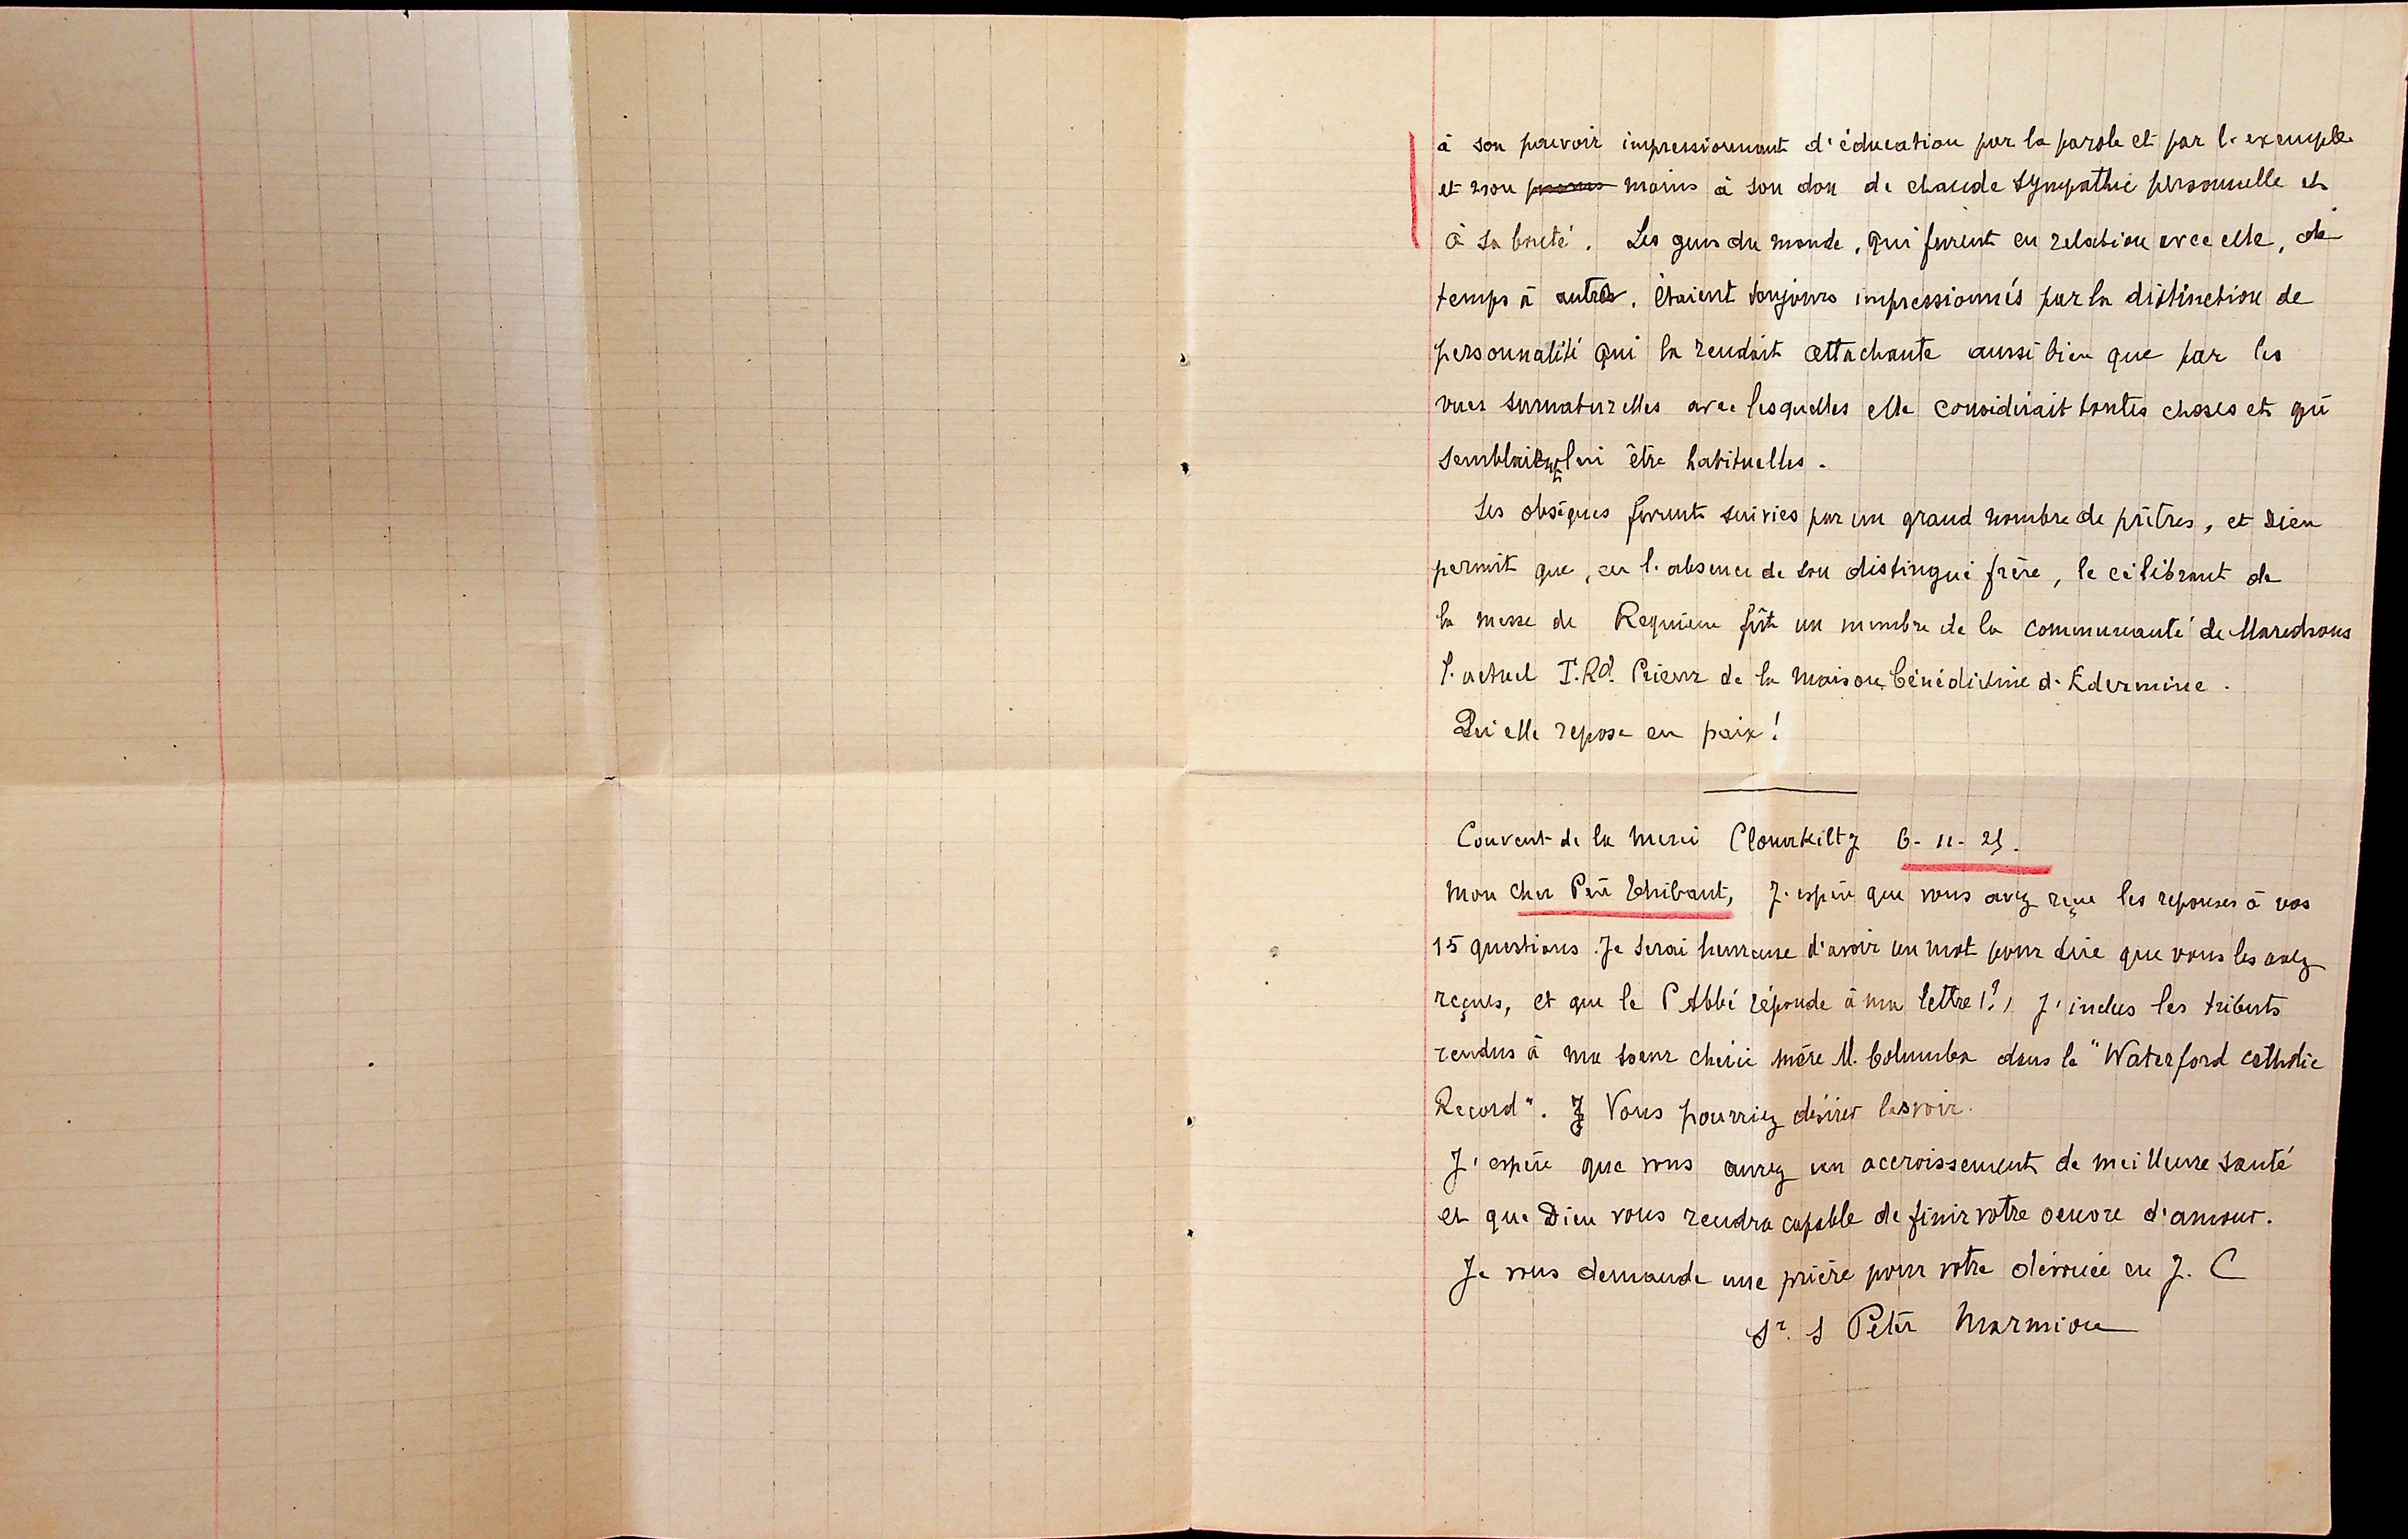 à son pouvoir impressionnant d'éducation par la parole et par l'exemple
et non moins à son don de chaude sympathie personnelle et
à sa bonté. Les gens du monde, qui furent en relation avec elle, de
temps à autres, étaient toujours impressionnés par la distinction de
personnalité qui la rendait attachante aussi bien que par les
vues surnaturelles avec lesquelles elle considérait toutes choses et qui
semblaient lui être habituelles.
Ses obsèques furent suivies par un grand nombre de prêtres, et Dieu
permit que, en l'absence de son distingué frère, le célébrant de
la messe de Requiem fût un membre de la communauté de Maredsous
l'actuel T.Rd. Prieur de la maison bénédictine d'Edermine.
Qu'elle repose en paix!
Couvent de la Merci Clonakilty 6-11-25.
Mon cher Père Thibaut, J'espère que vous avez reçu les réponses à vos
15 questions. Je serai heureuse d'avoir un mot pour dire que vous les avez
reçues, et que le P Abbé réponde à ma lettre (?) J'inclus les tributs
rendus à ma soeur chérie mère M. Columba dans le "Waterford catholic
Record". Vous pourriez désirer les voir.
J'espère que vous aurez un accroissement de meilleure santé
et que Dieu vous rendra capable de finir votre oeuvre d'amour.
Je vous demande une prière pour votre dévouée en J. C
Sr. S Peter Marmion